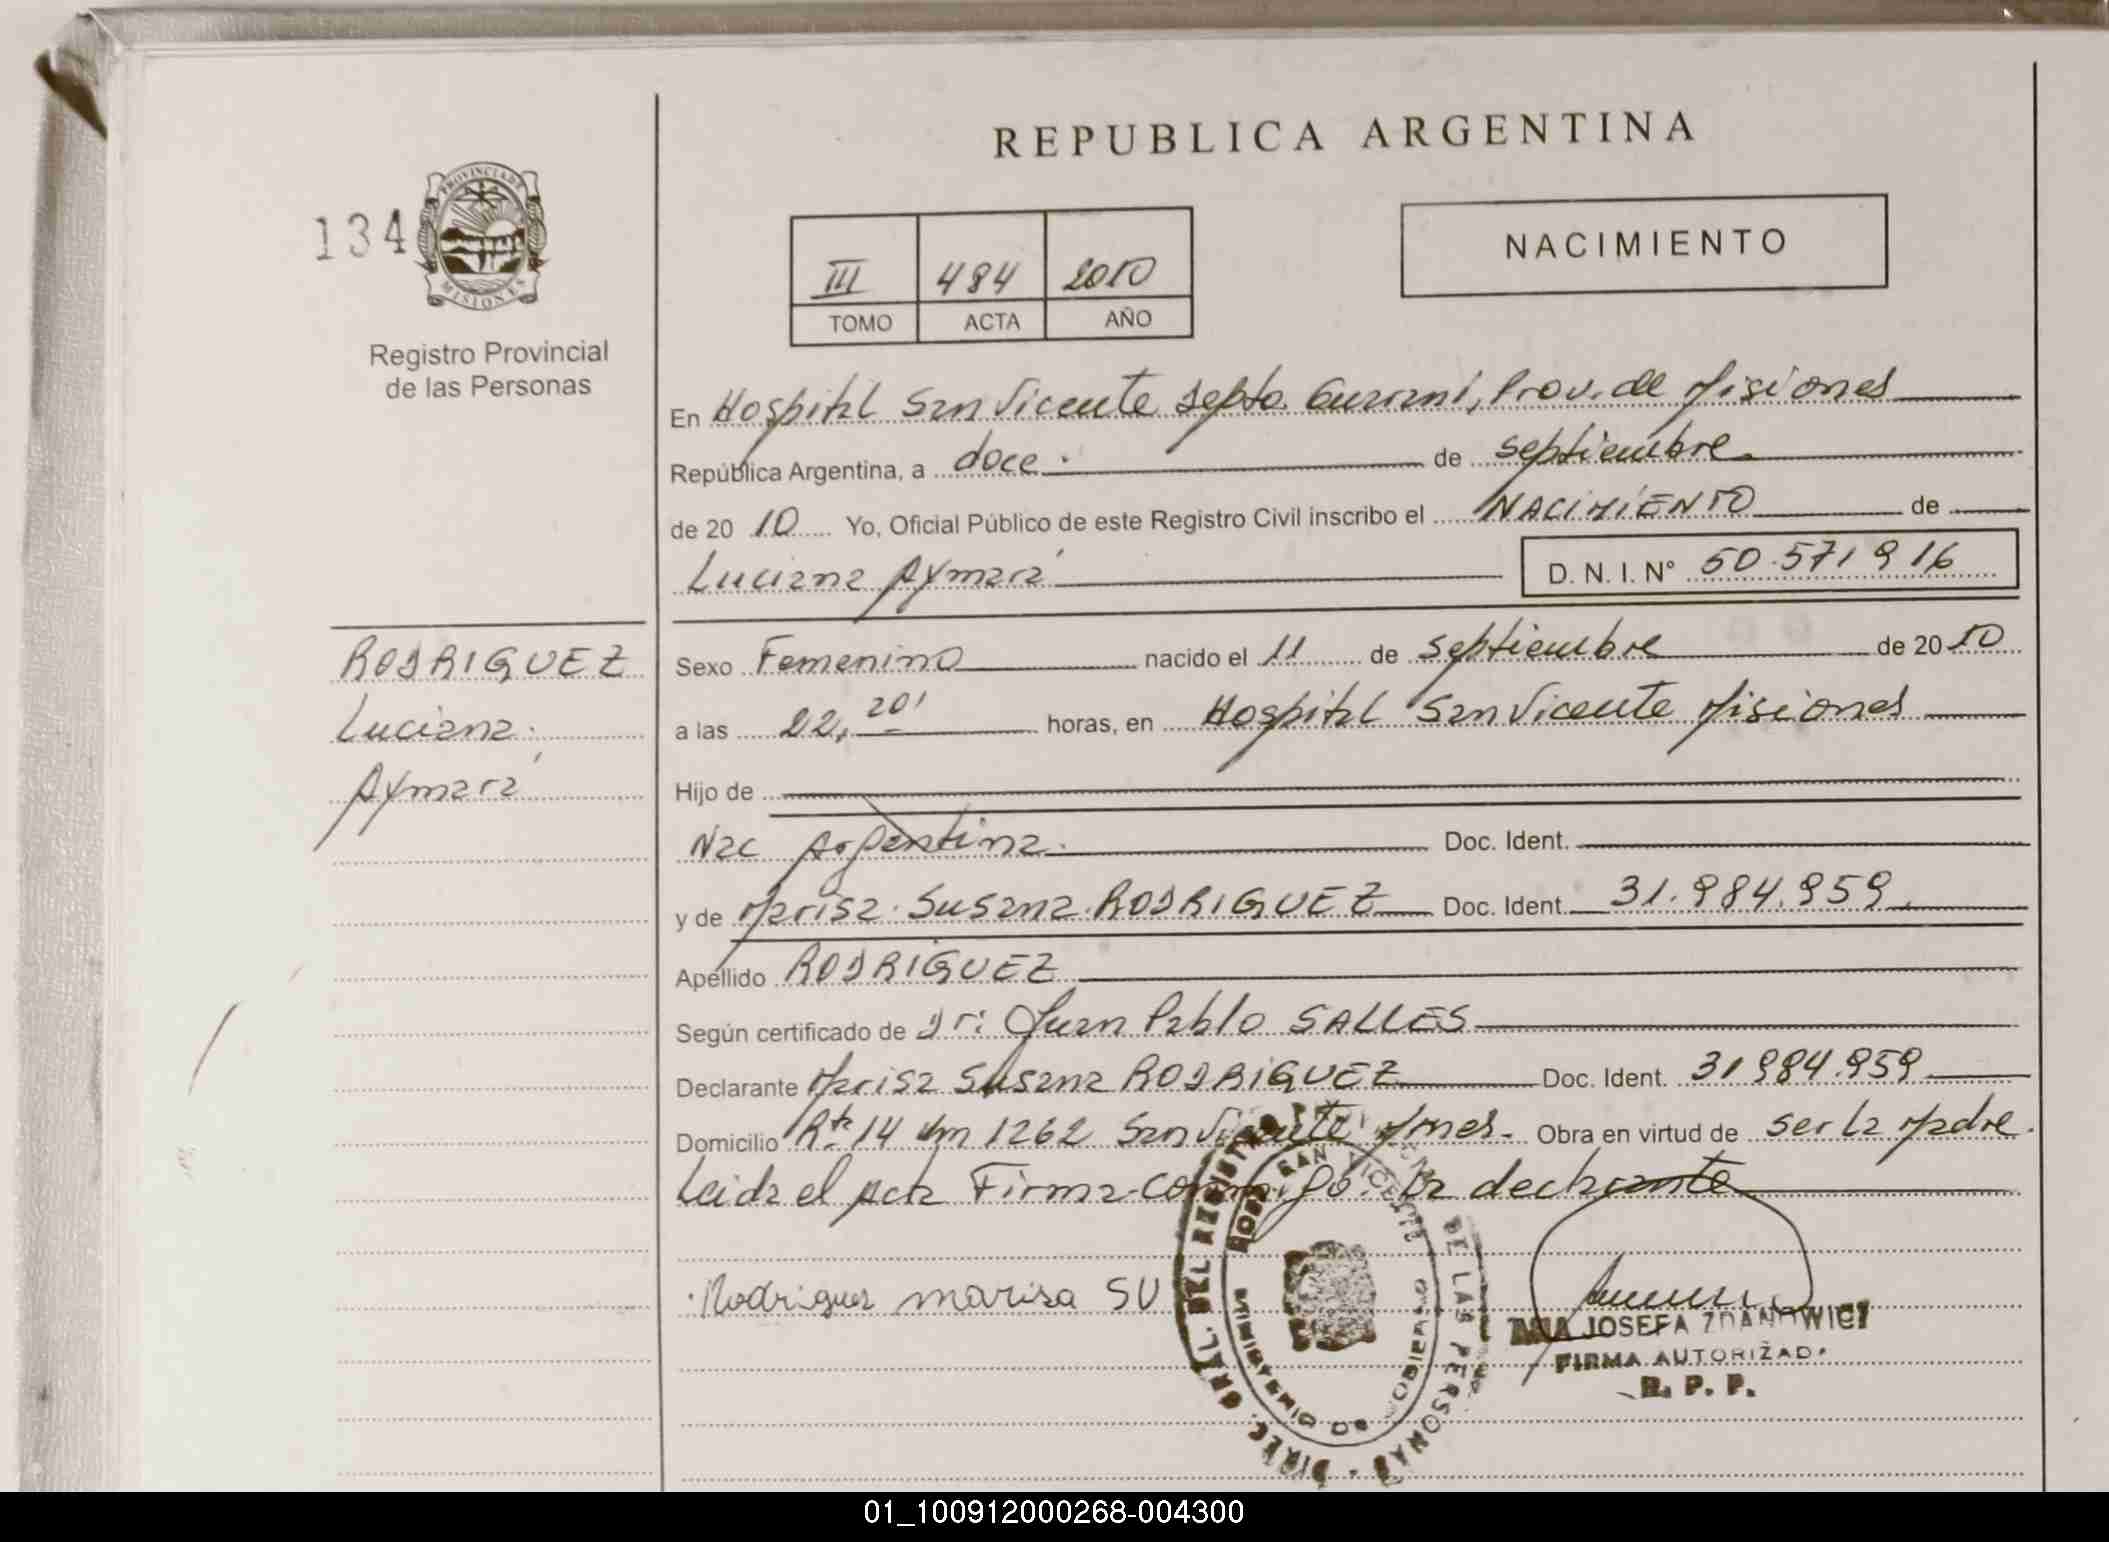 REPUBLICA ARGENTINA
134
PROVINCIA DE
MISIONES
Registro Provincial
de las Personas
III 484 2010
TOMO ACTA AÑO
NACIMIENTO
En Hospital San Vicente Depto Guaraní, Prov. de Misiones
República Argentina, a doce. de septiembre.
de 20 10 Yo, Oficial Público de este Registro Civil inscribo el NACIMIENTO de
Luciana Aymará
D. N. I. Nº 50.571916
RODRIGUEZ
Luciana.
Aymará
Sexo Femenino nacido el 11 de septiembre de 2010
a las 22, 20' horas, en Hospital San Vicente Misiones
Hijo de
Nac Argentina. Doc. Ident.
y de Marisa Susana RODRIGUEZ Doc. Ident. 31.984.959.
Apellido RODRIGUEZ
Según certificado de Dr: Juan Pablo SALLES
Declarante Marisa Susana RODRIGUEZ Doc. Ident. 31984.959
Domicilio Rta 14 km 1262 San Vicente Mnes. Obra en virtud de ser la Madre.
Leida el Acta Firma conmigo la declarante
Rodriguez marisa SU
DIREC. GRAL. DEL REGISTRO DE LAS PERSONAS
SAN VICENTE
MINISTERIO DE GOBIERNO
JOSEFA ZDANOWICZ
FIRMA AUTORIZAD.
R. P. P.
01_100912000268-004300